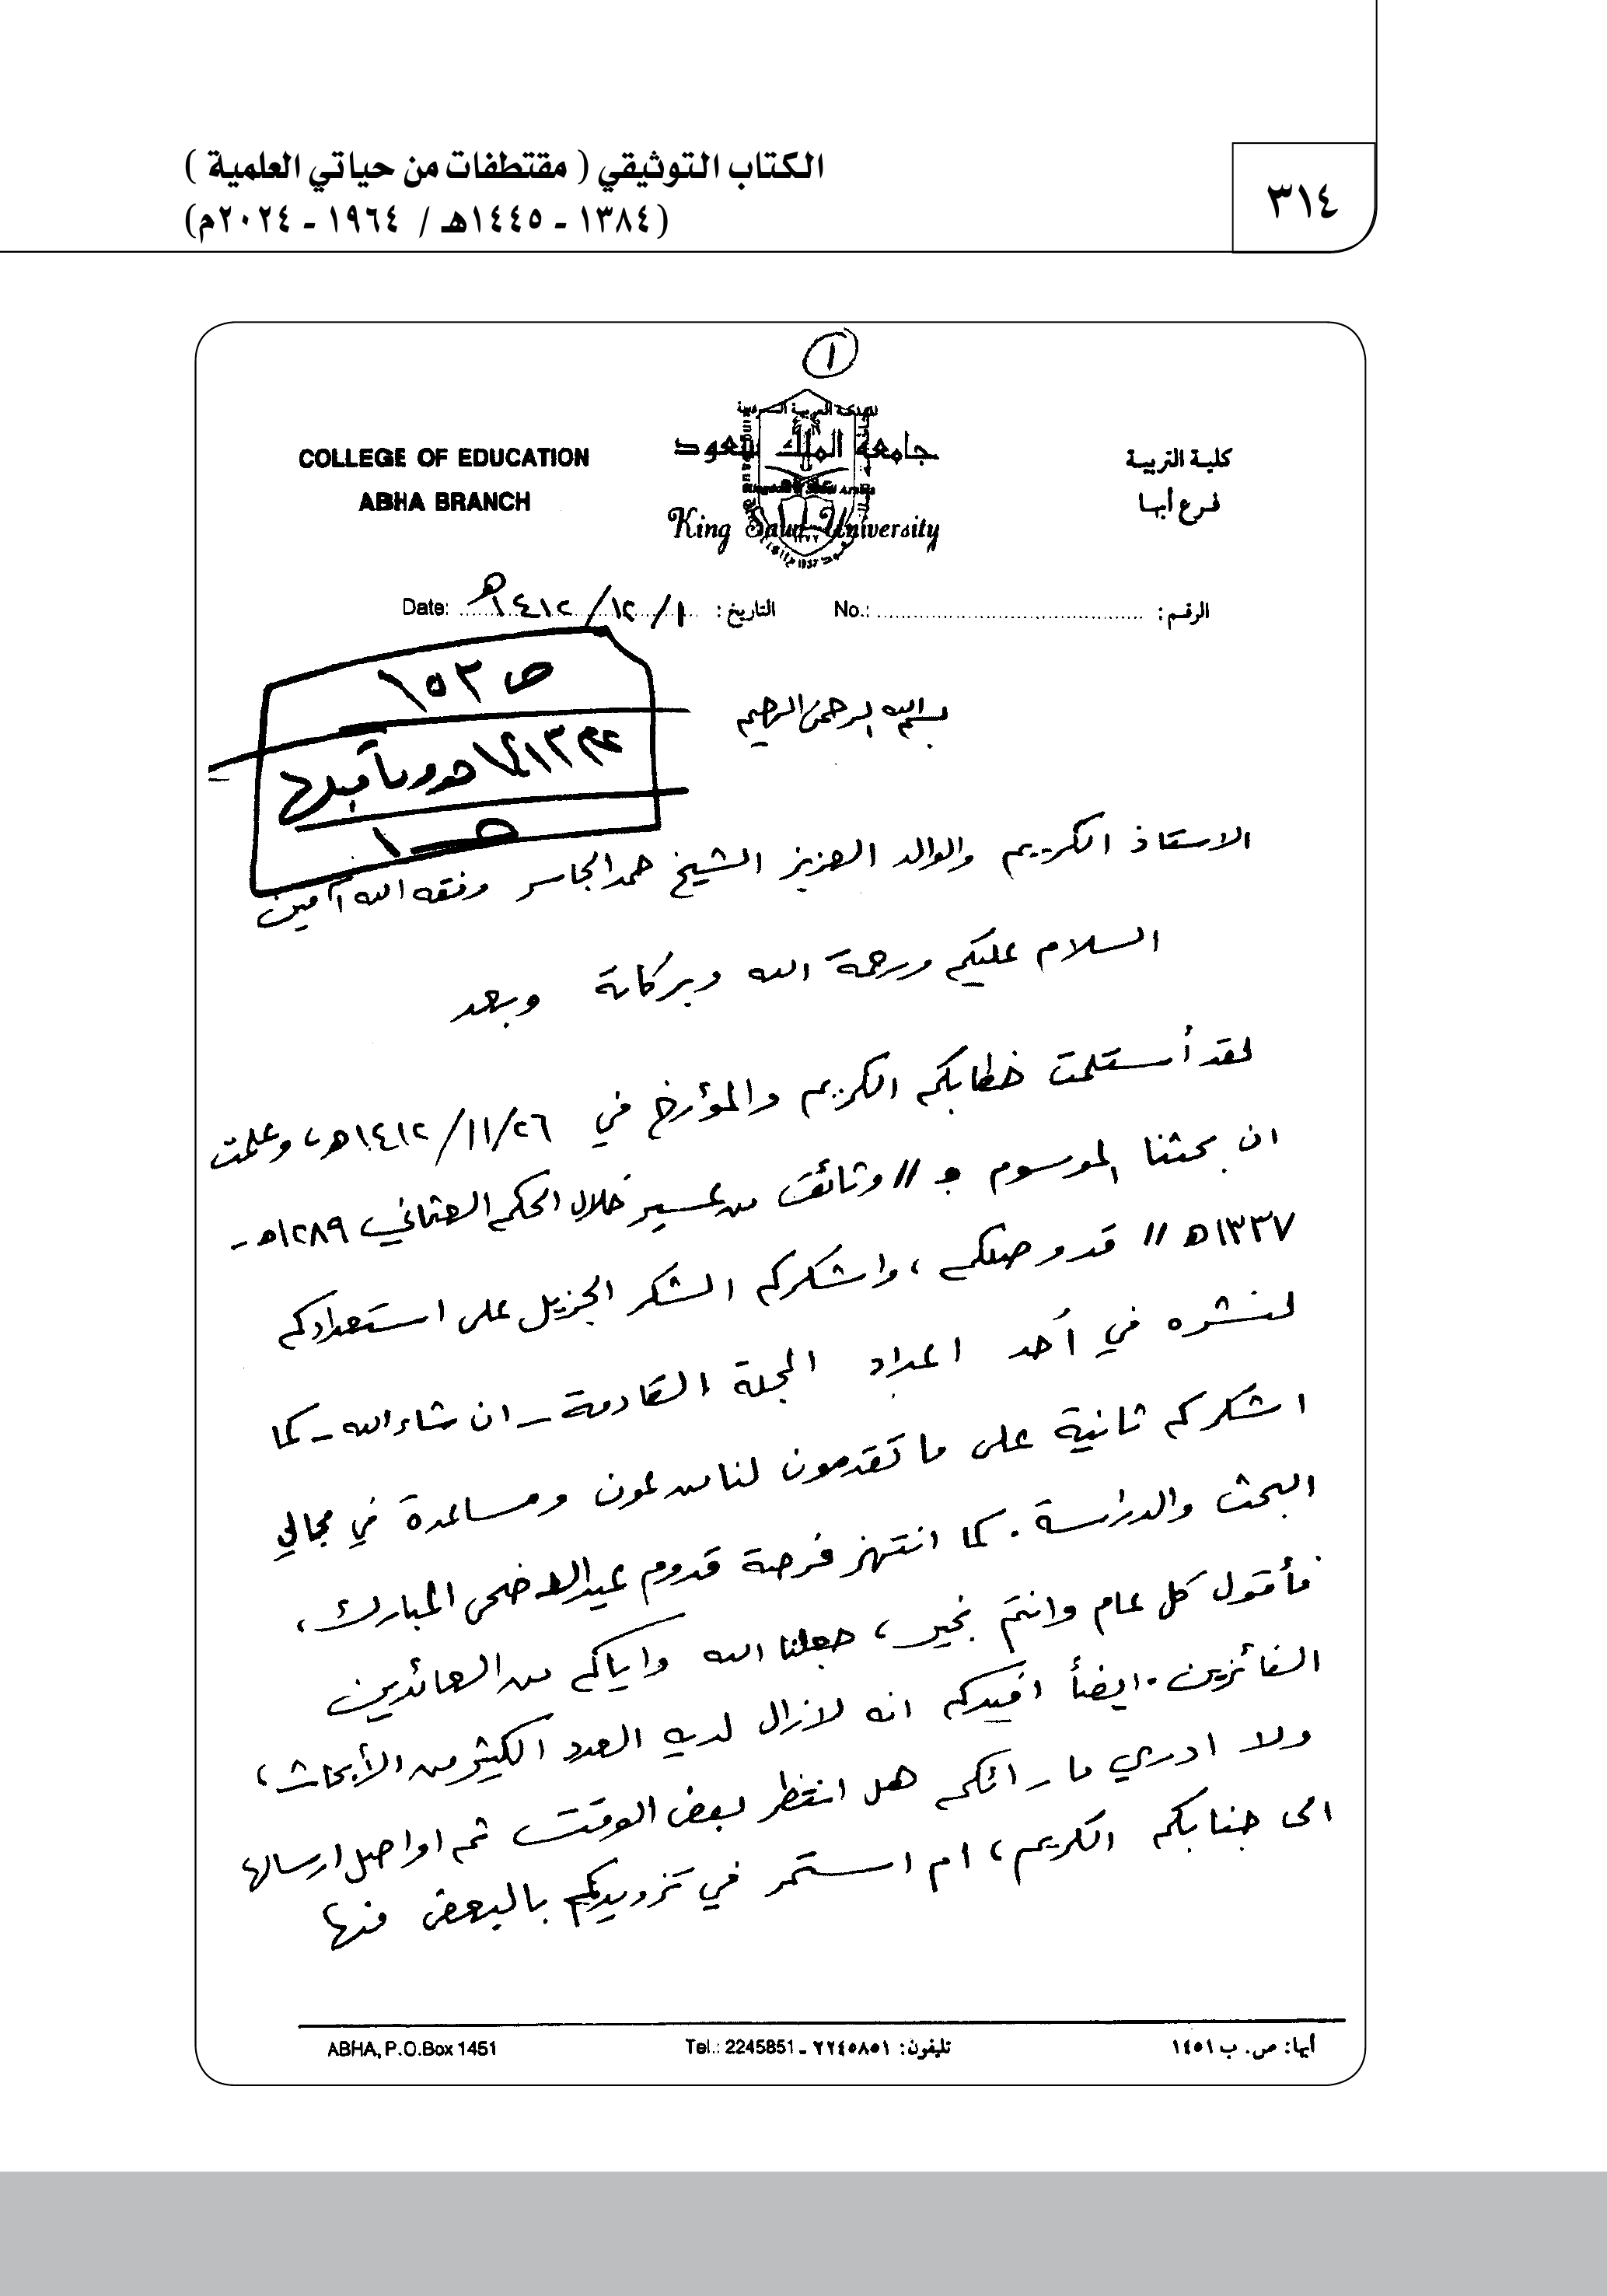 ٣١٤
الكتاب التوثيقي ( مقتطفات من حياتي العلمية )
(١٣٨٤ - ١٤٤٥هـ / ١٩٦٤ - ٢٠٢٤م)
١
كلية التربية
فرع أبها
جامعة الملك سعود
King Saud University
COLLEGE OF EDUCATION
ABHA BRANCH
الرقم: No.:
التاريخ: ١/١٢/١٤١٢هـ Date:
ص ١٥٣
بسم الله الرحمن الرحيم
الاستاذ الكريم والوالد العزيز الشيخ حمد الجاسر وفقه الله آمين
السلام عليكم ورحمة الله وبركاتة وبعد
لقد أستلمت خطابكم الكريم والمؤرخ في ١٤١٢/١١/٢٦هـ، وعلمت
ان بحثنا الموسوم بـ // وثائق من عسير خلال الحكم العثماني ١٢٨٩هـ -
١٣٣٧هـ // قد وصلكم، واشكركم الشكر الجزيل على استعدادكم
لنشره في أحد اعداد المجلة القادمة - ان شاء الله - كما
اشكركم ثانية على ما تقدمون لنا من عون ومساعدة في مجالي
البحث والدراسة. كما انتهز فرصة قدوم عيد الاضحى المبارك،
فأقول كل عام وانتم بخير، جعلنا الله واياكم من العائدين
الفائزين. ايضاً افيدكم انه لازال لديه العدد الكثير من الأبحاث،
ولا ادري ما رائكم هل انتظر بعض الوقت ثم اواصل ارسالها
الى جنابكم الكريم، ام استمر في تزويدكم بالبعض منها
أبها: ص. ب ١٤٥١
تليفون: ٢٢٤٥٨٥١ - Tel.: 2245851
ABHA, P.O.Box 1451